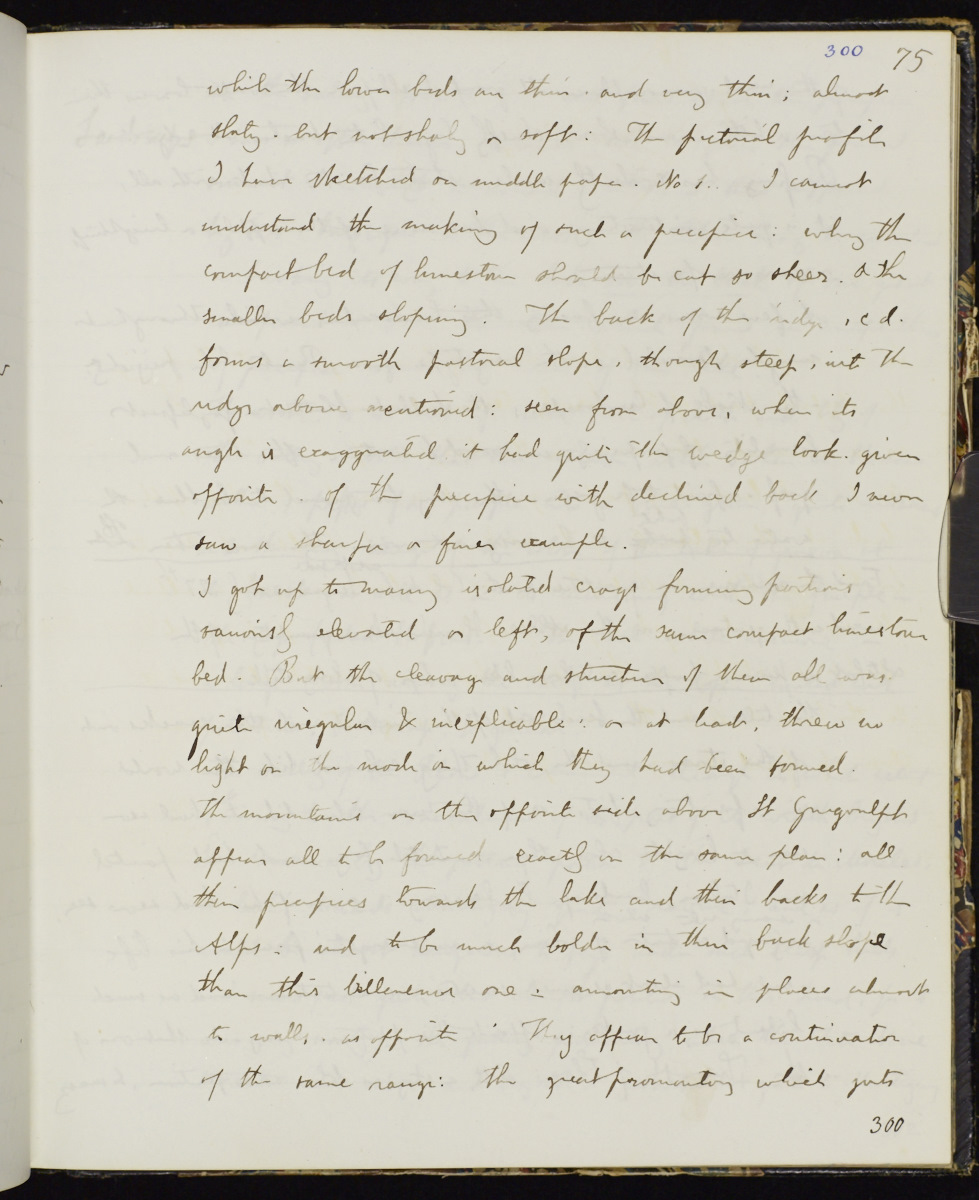 300 75
while the lower beds are thin. and very thin; almost
slaty. but not shaly or soft: The pictorial profile
I have sketched on middle paper. No 1.. I cannot
understand the making of such a precipice: why the
compact bed of limestone should be cut so sheer. & the
smaller beds sloping. The back of this ridge, c d.
forms a smooth pastoral slope, though steep, in the
ridge above mentioned: seen from above, when its
angle is exaggerated it had quite the wedge look. given
opposite. of the precipice with declined back I never
saw a sharper or finer example.
I got up to many isolated crags forming portions
variously elevated or left, of the same compact limestone
bed. But the cleavage and structure of them all was
quite irregular & inexplicable: or at least, threw no
light on the mode in which they had been formed.
The mountains on the opposite side above St Gingoulph
appear all to be formed exactly on the same plan: all
their precipices towards the lake and their backs to the
Alps: and to be much bolder in their back slope
than this one: amounting in places almost
to walls. as opposite They appear to be a continuation
of the same range: the great promontory which juts
300